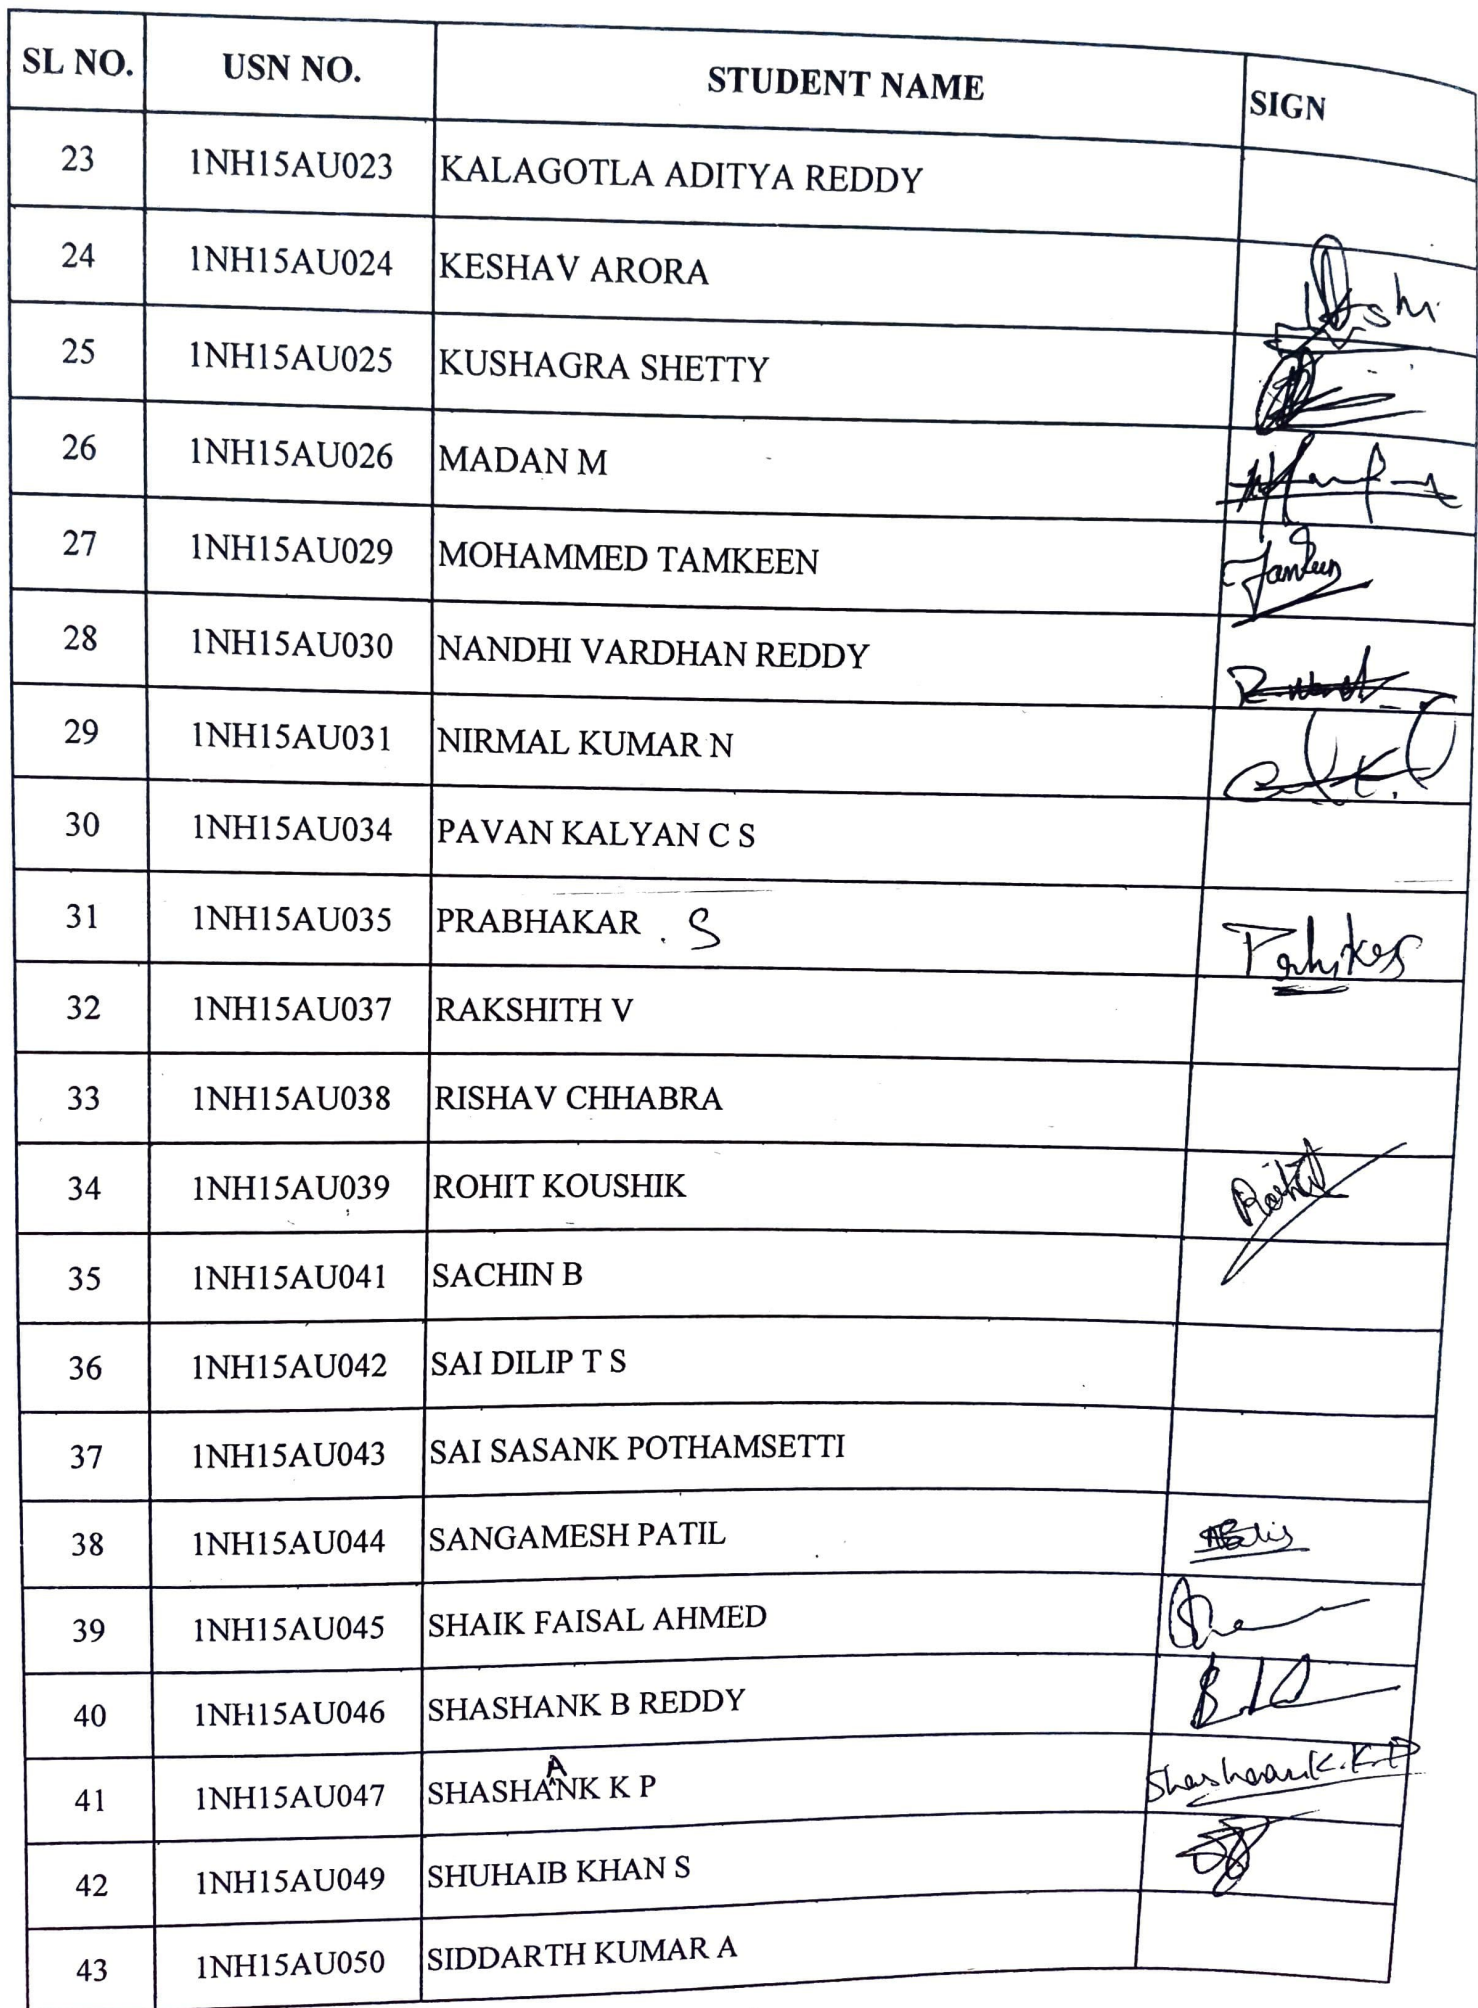 SL NO. USN NO. STUDENT NAME SIGN
23 1NH15AU023 KALAGOTLA ADITYA REDDY
24 1NH15AU024 KESHAV ARORA
25 1NH15AU025 KUSHAGRA SHETTY
26 1NH15AU026 MADAN M
27 1NH15AU029 MOHAMMED TAMKEEN
28 1NH15AU030 NANDHI VARDHAN REDDY
29 1NH15AU031 NIRMAL KUMAR N
30 1NH15AU034 PAVAN KALYAN C S
31 1NH15AU035 PRABHAKAR . S
32 1NH15AU037 RAKSHITH V
33 1NH15AU038 RISHAV CHHABRA
34 1NH15AU039 ROHIT KOUSHIK Rohit
35 1NH15AU041 SACHIN B
36 1NH15AU042 SAI DILIP T S
37 1NH15AU043 SAI SASANK POTHAMSETTI
38 1NH15AU044 SANGAMESH PATIL
39 1NH15AU045 SHAIK FAISAL AHMED
40 1NH15AU046 SHASHANK B REDDY
41 1NH15AU047 SHASHAANK K P Shashaank.K.P
42 1NH15AU049 SHUHAIB KHAN S
43 1NH15AU050 SIDDARTH KUMAR A